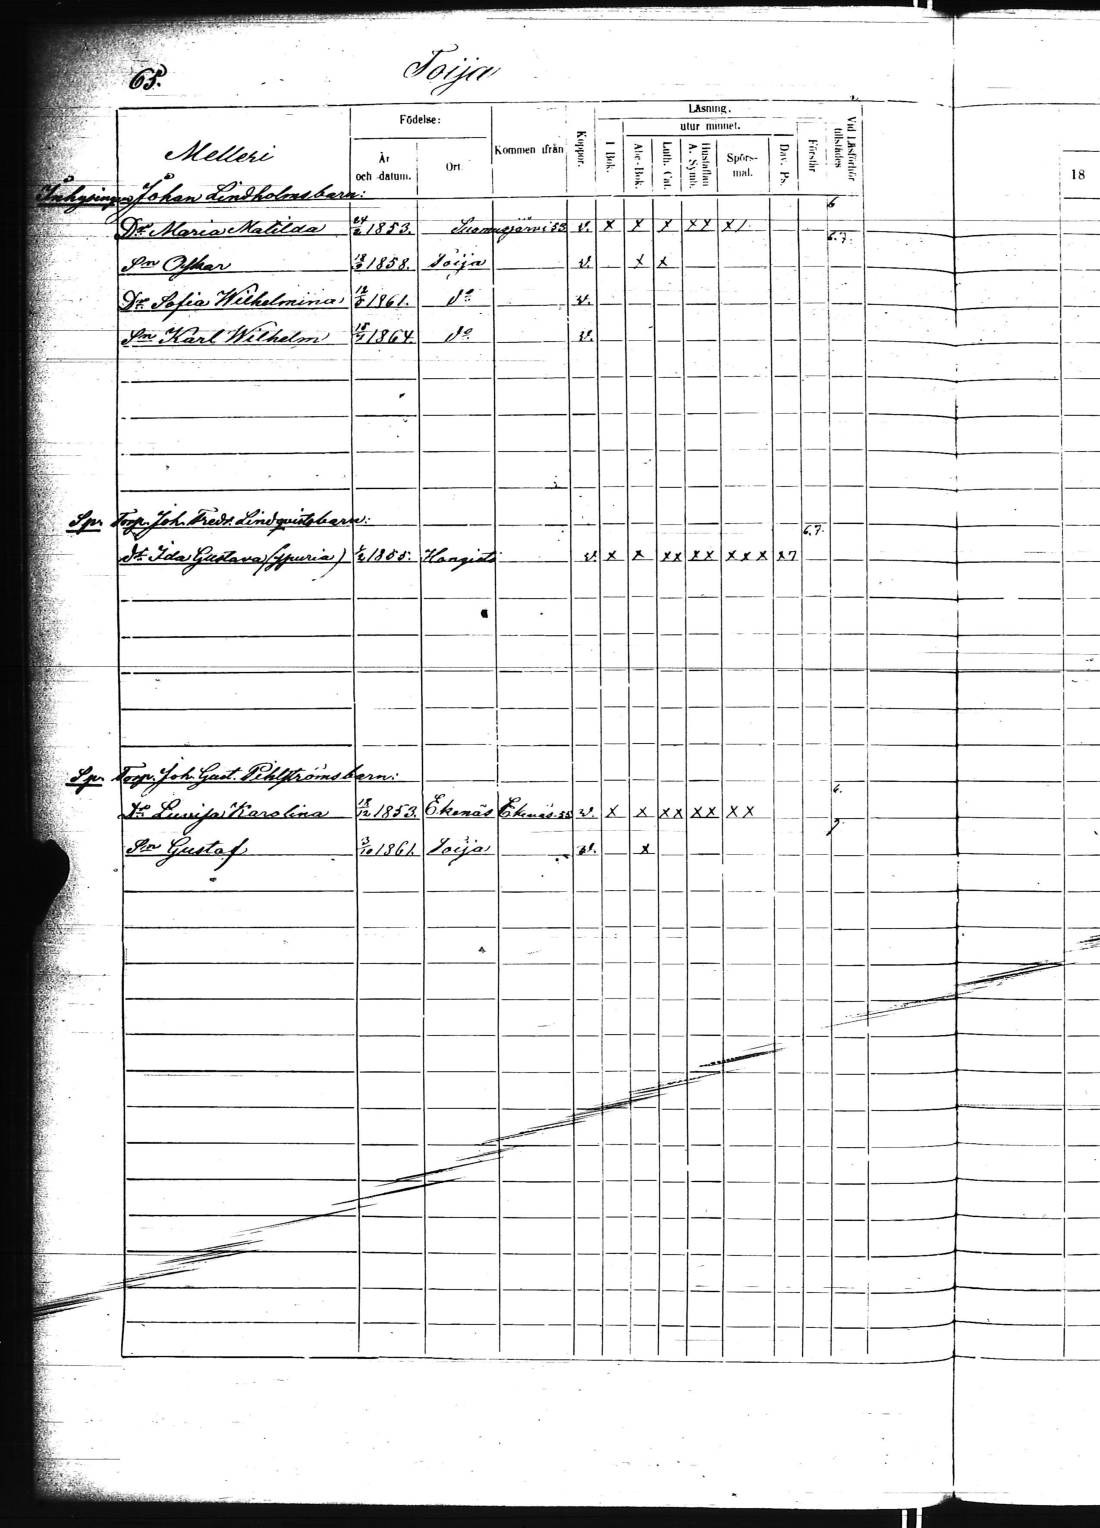 65. Toija
Läsning.
Födelse: utur minnet.
Melleri År och datum. Ort. Kommen ifrån Koppor. I Bok. Abc-Bok. Luth. Cat. Hustaflan A. Symb. Spörs-mal. Dav. Ps. Förstår Vid Läsförhör tillstädes 18
Inhysingen Johan Lindholms barn: 6
Dr Maria Matilda 24/2 1853. Suomusjärvi 53 v. x x x xx x/ 6.7.
Sn Oskar 18/3 1858. Toija v. x x
Dr Sofia Wilhelmina 1861. do v.
Sn Karl Wilhelm 1864. do v.
Spr Torp. Joh. Fredr. Lindqvists barn: 6.7.
dr Ida Gustava (spuria) 1/2 1855. Kangisto v. x x xx xx xxx x7
Spr Torp. Joh. Gust. Pihlströms barn: 6.
Dr Lovisa Karolina 18/12 1853. Ekenäs Ekenäs 55 v. x x xx xx xx 7
Sn Gustaf 3/10 1861. Toija v. x